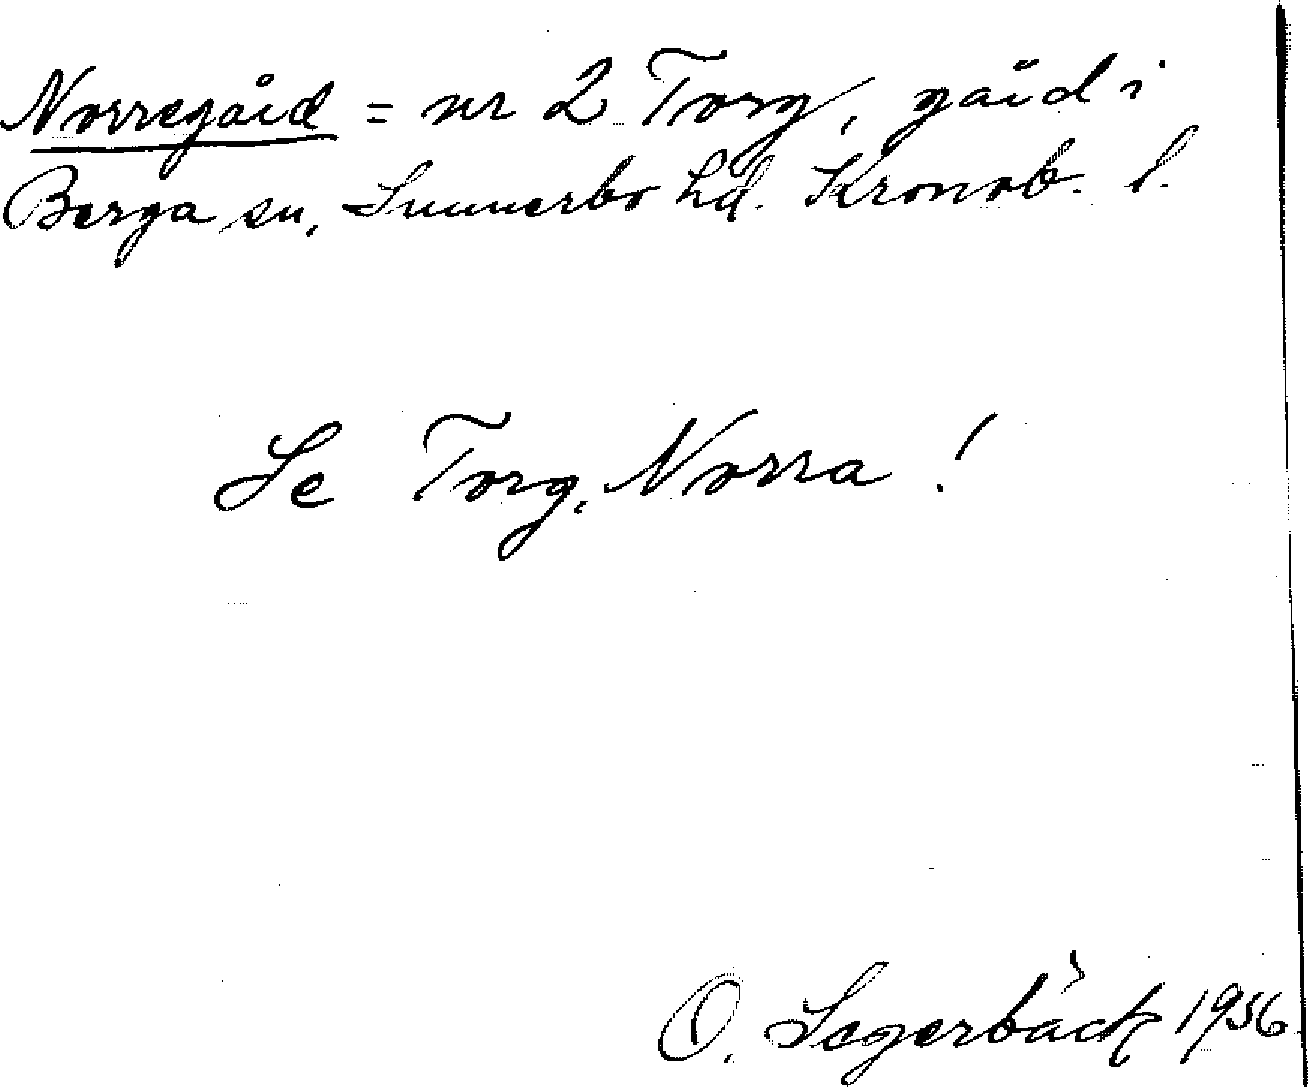 Norregård = nr 2 Torg, gård i
Berga sn, Sunnerbo hd. Kronob. l.
Se Torg, Norra!
O. Segerbäck 1956.